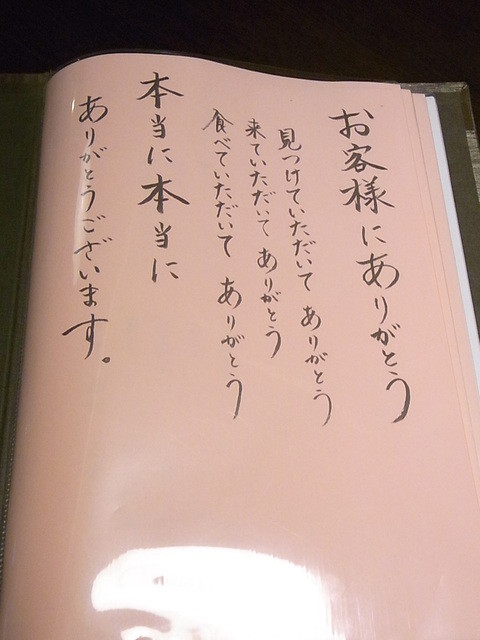 お客様にありがとう
見つけていただいて ありがとう
来ていただいて ありがとう
食べていただいて ありがとう
本当に本当に
ありがとうございます。